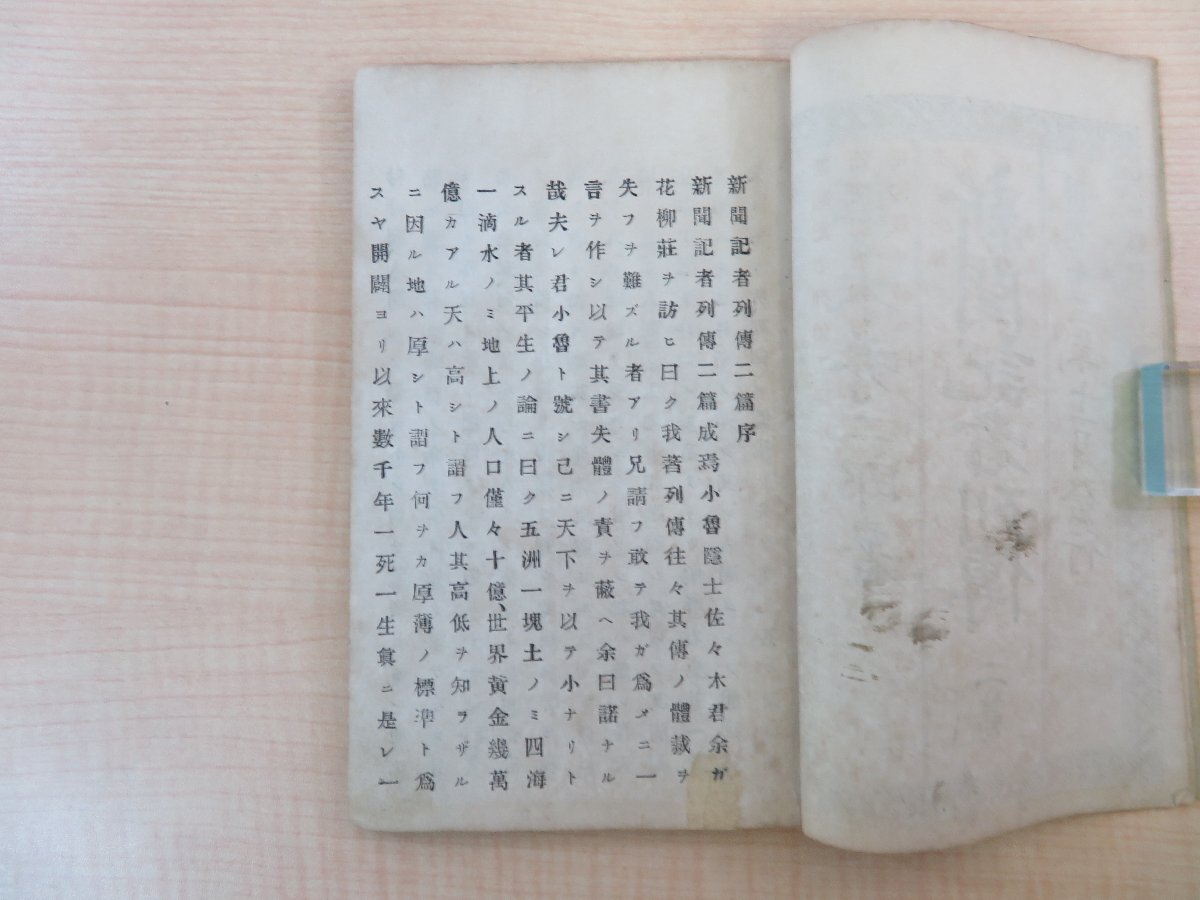 新聞記者列傳二篇序
新聞記者列傳二篇成焉小魯隱士佐々木君余ガ
花柳莊ヲ訪ヒ曰ク我著列傳往々其傳ノ體裁ヲ
失フヲ難ズル者アリ兄請フ敢テ我ガ爲メニ一
言ヲ作シ以テ其書失體ノ責ヲ蔽ヘ余曰諾ナル
哉夫レ君小魯ト號シ己ニ天下ヲ以テ小ナリト
スル者其平生ノ論ニ曰ク五洲一塊土ノミ四海
一滴水ノミ地上ノ人口僅々十億、世界黃金幾萬
億カアル天ハ高シト謂フ人其高低ヲ知ラザル
ニ因ル地ハ厚シト謂フ何ヲカ厚薄ノ標準ト爲
スヤ開闢ヨリ以來數千年一死一生眞ニ是レ一